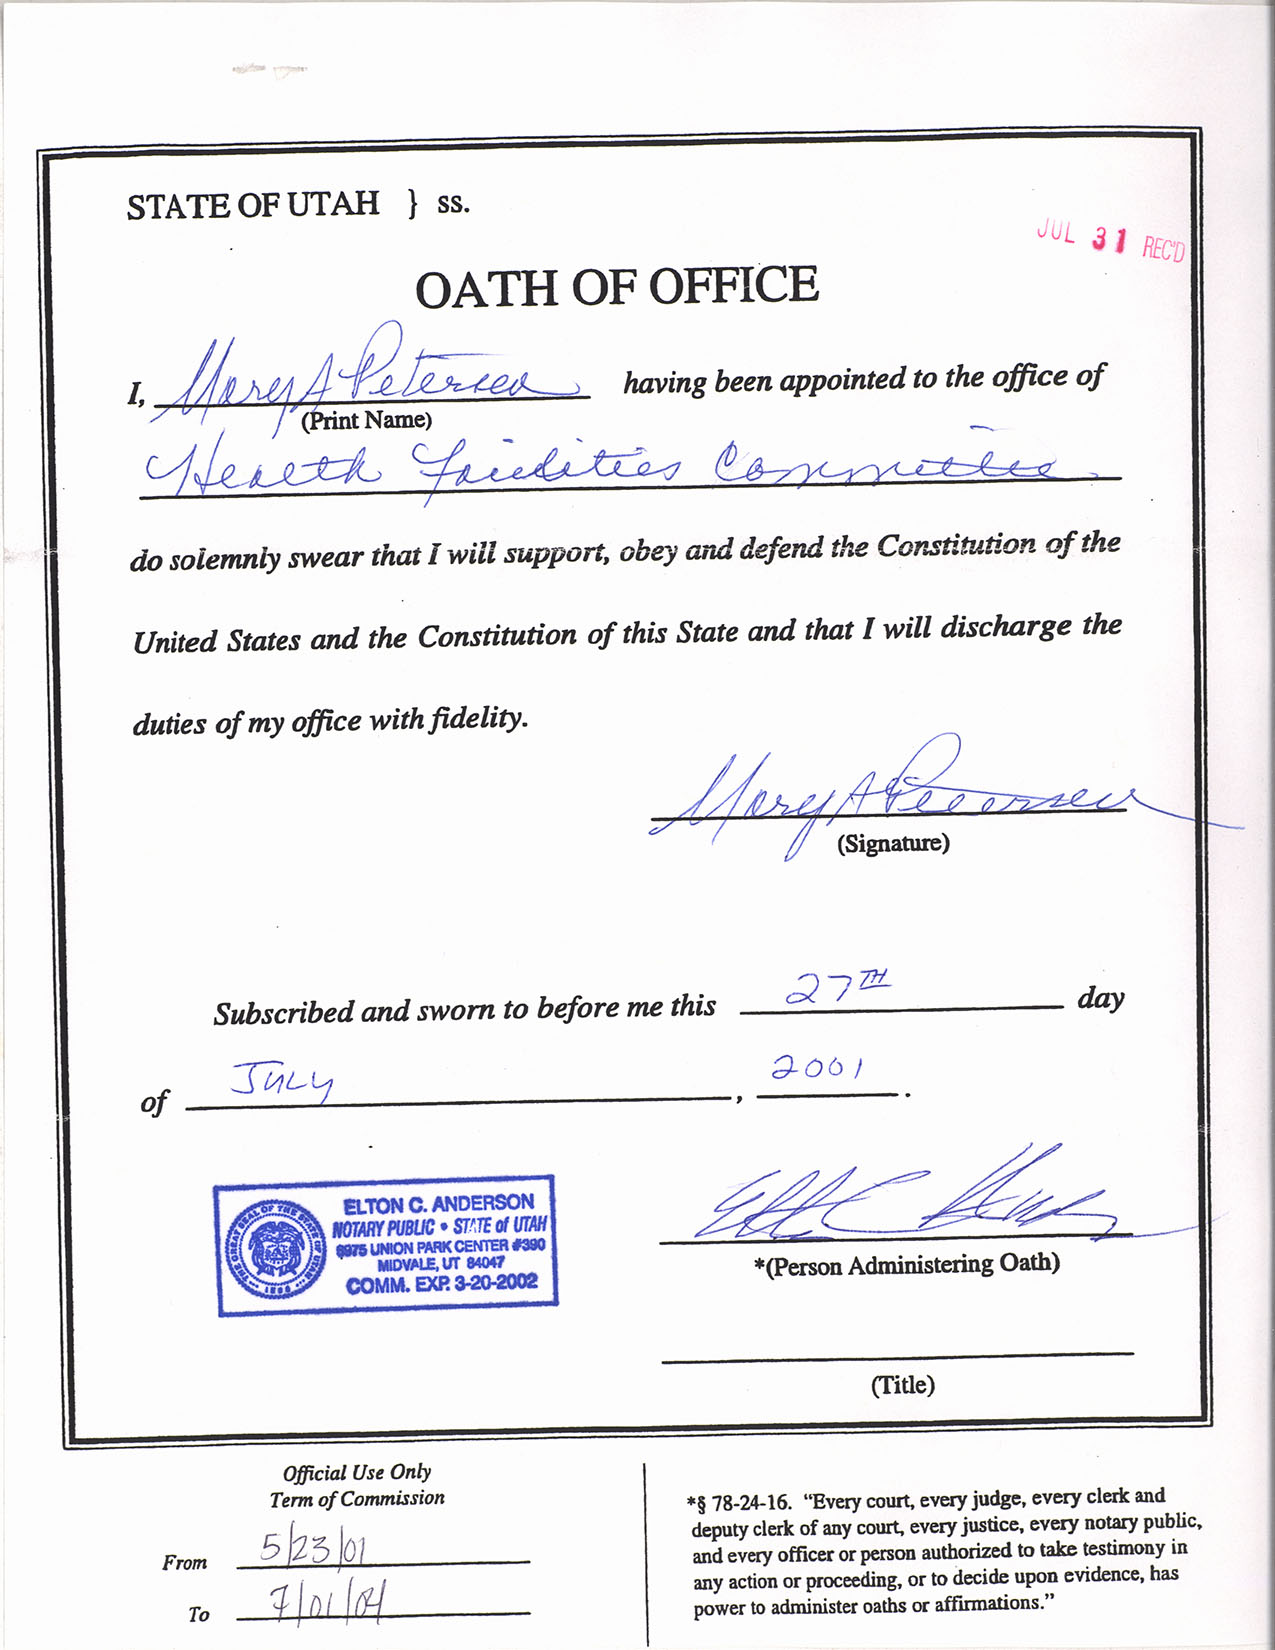 STATE OF UTAH } ss.
JUL 31 REC'D
OATH OF OFFICE
I, Mary A Petersen having been appointed to the office of
(Print Name)
Health Facilities Committee
do solemnly swear that I will support, obey and defend the Constitution of the
United States and the Constitution of this State and that I will discharge the
duties of my office with fidelity.
Mary A Petersen
(Signature)
Subscribed and sworn to before me this 27TH day
of July, 2001.
ELTON C. ANDERSON
NOTARY PUBLIC • STATE of UTAH
6975 UNION PARK CENTER #390
MIDVALE, UT 84047
COMM. EXP. 3-20-2002
THE GREAT SEAL OF THE STATE OF UTAH
1896
*(Person Administering Oath)
(Title)
Official Use Only
Term of Commission
From 5/23/01
To 7/01/04
*§ 78-24-16. “Every court, every judge, every clerk and
deputy clerk of any court, every justice, every notary public,
and every officer or person authorized to take testimony in
any action or proceeding, or to decide upon evidence, has
power to administer oaths or affirmations.”